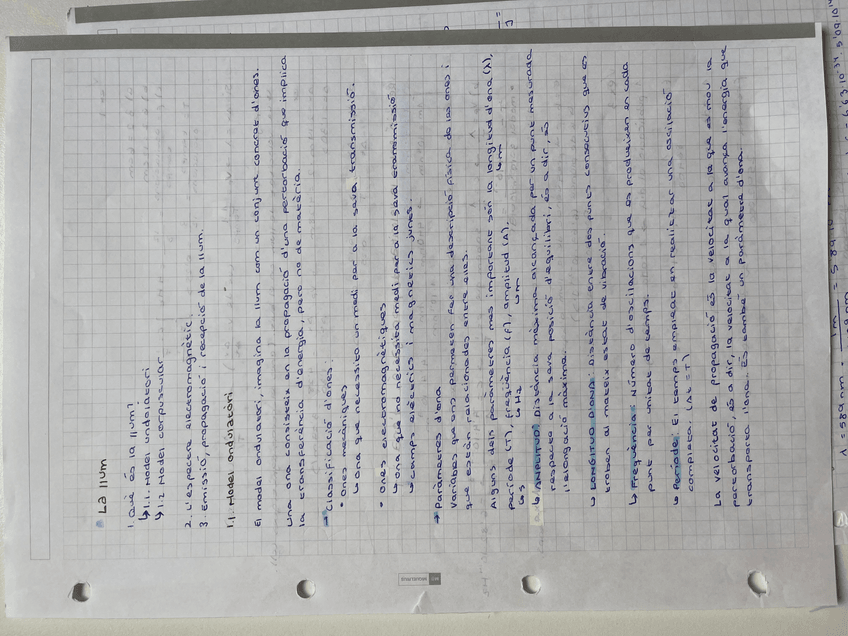 • La llum
1. Què és la llum?
↳ 1.1. Model ondulatori
↳ 1.2. Model corpuscular
2. L'espectre electromagnètic.
3. Emissió, propagació i recepció de la llum.
1.1. Model ondulatòri
El model ondulatori, imagina la llum com un conjunt concret d'ones.
Una ona consisteix en la propagació d'una pertorbació que implica
la transferència d'energia, però no de matèria.
→ Classificació d'ones:
• Ones mecàniques
↳ ona que necessita un medi per a la seva transmissió.
• Ones electromagnètiques
↳ ona que no necessita medi per a la seva transmissió
↳ camps elèctrics i magnètics junts.
→ Paràmetres d'ona
Variables que ens permeten fer una descripció física de les ones i
que estàn relacionades entre elles.
Alguns dels paràmetres més importants són la longitud d'ona (λ),
període (T), freqüència (f), amplitud (A). ↳ m
↳ s ↳ Hz ↳ m
↳ AMPLITUD: Distància màxima alcançada per un punt mesurada
respecte a la seva posició d'equilibri, és a dir, és
l'elongació màxima.
↳ LONGITUD D'ONA: Distància entre dos punts consecutius que es
troben al mateix estat de vibració.
↳ Freqüència: Número d'oscilacions que es produeixen en cada
punt per unitat de temps.
↳ Període: El temps empleat en realitzar una oscilació
completa. (Δt = T)
La velocitat de propagació és la velocitat a la que es mou la
pertorbació, és a dir, la velocitat a la qual avança l'energia que
transporta l'ona. És també un paràmetre d'ona.